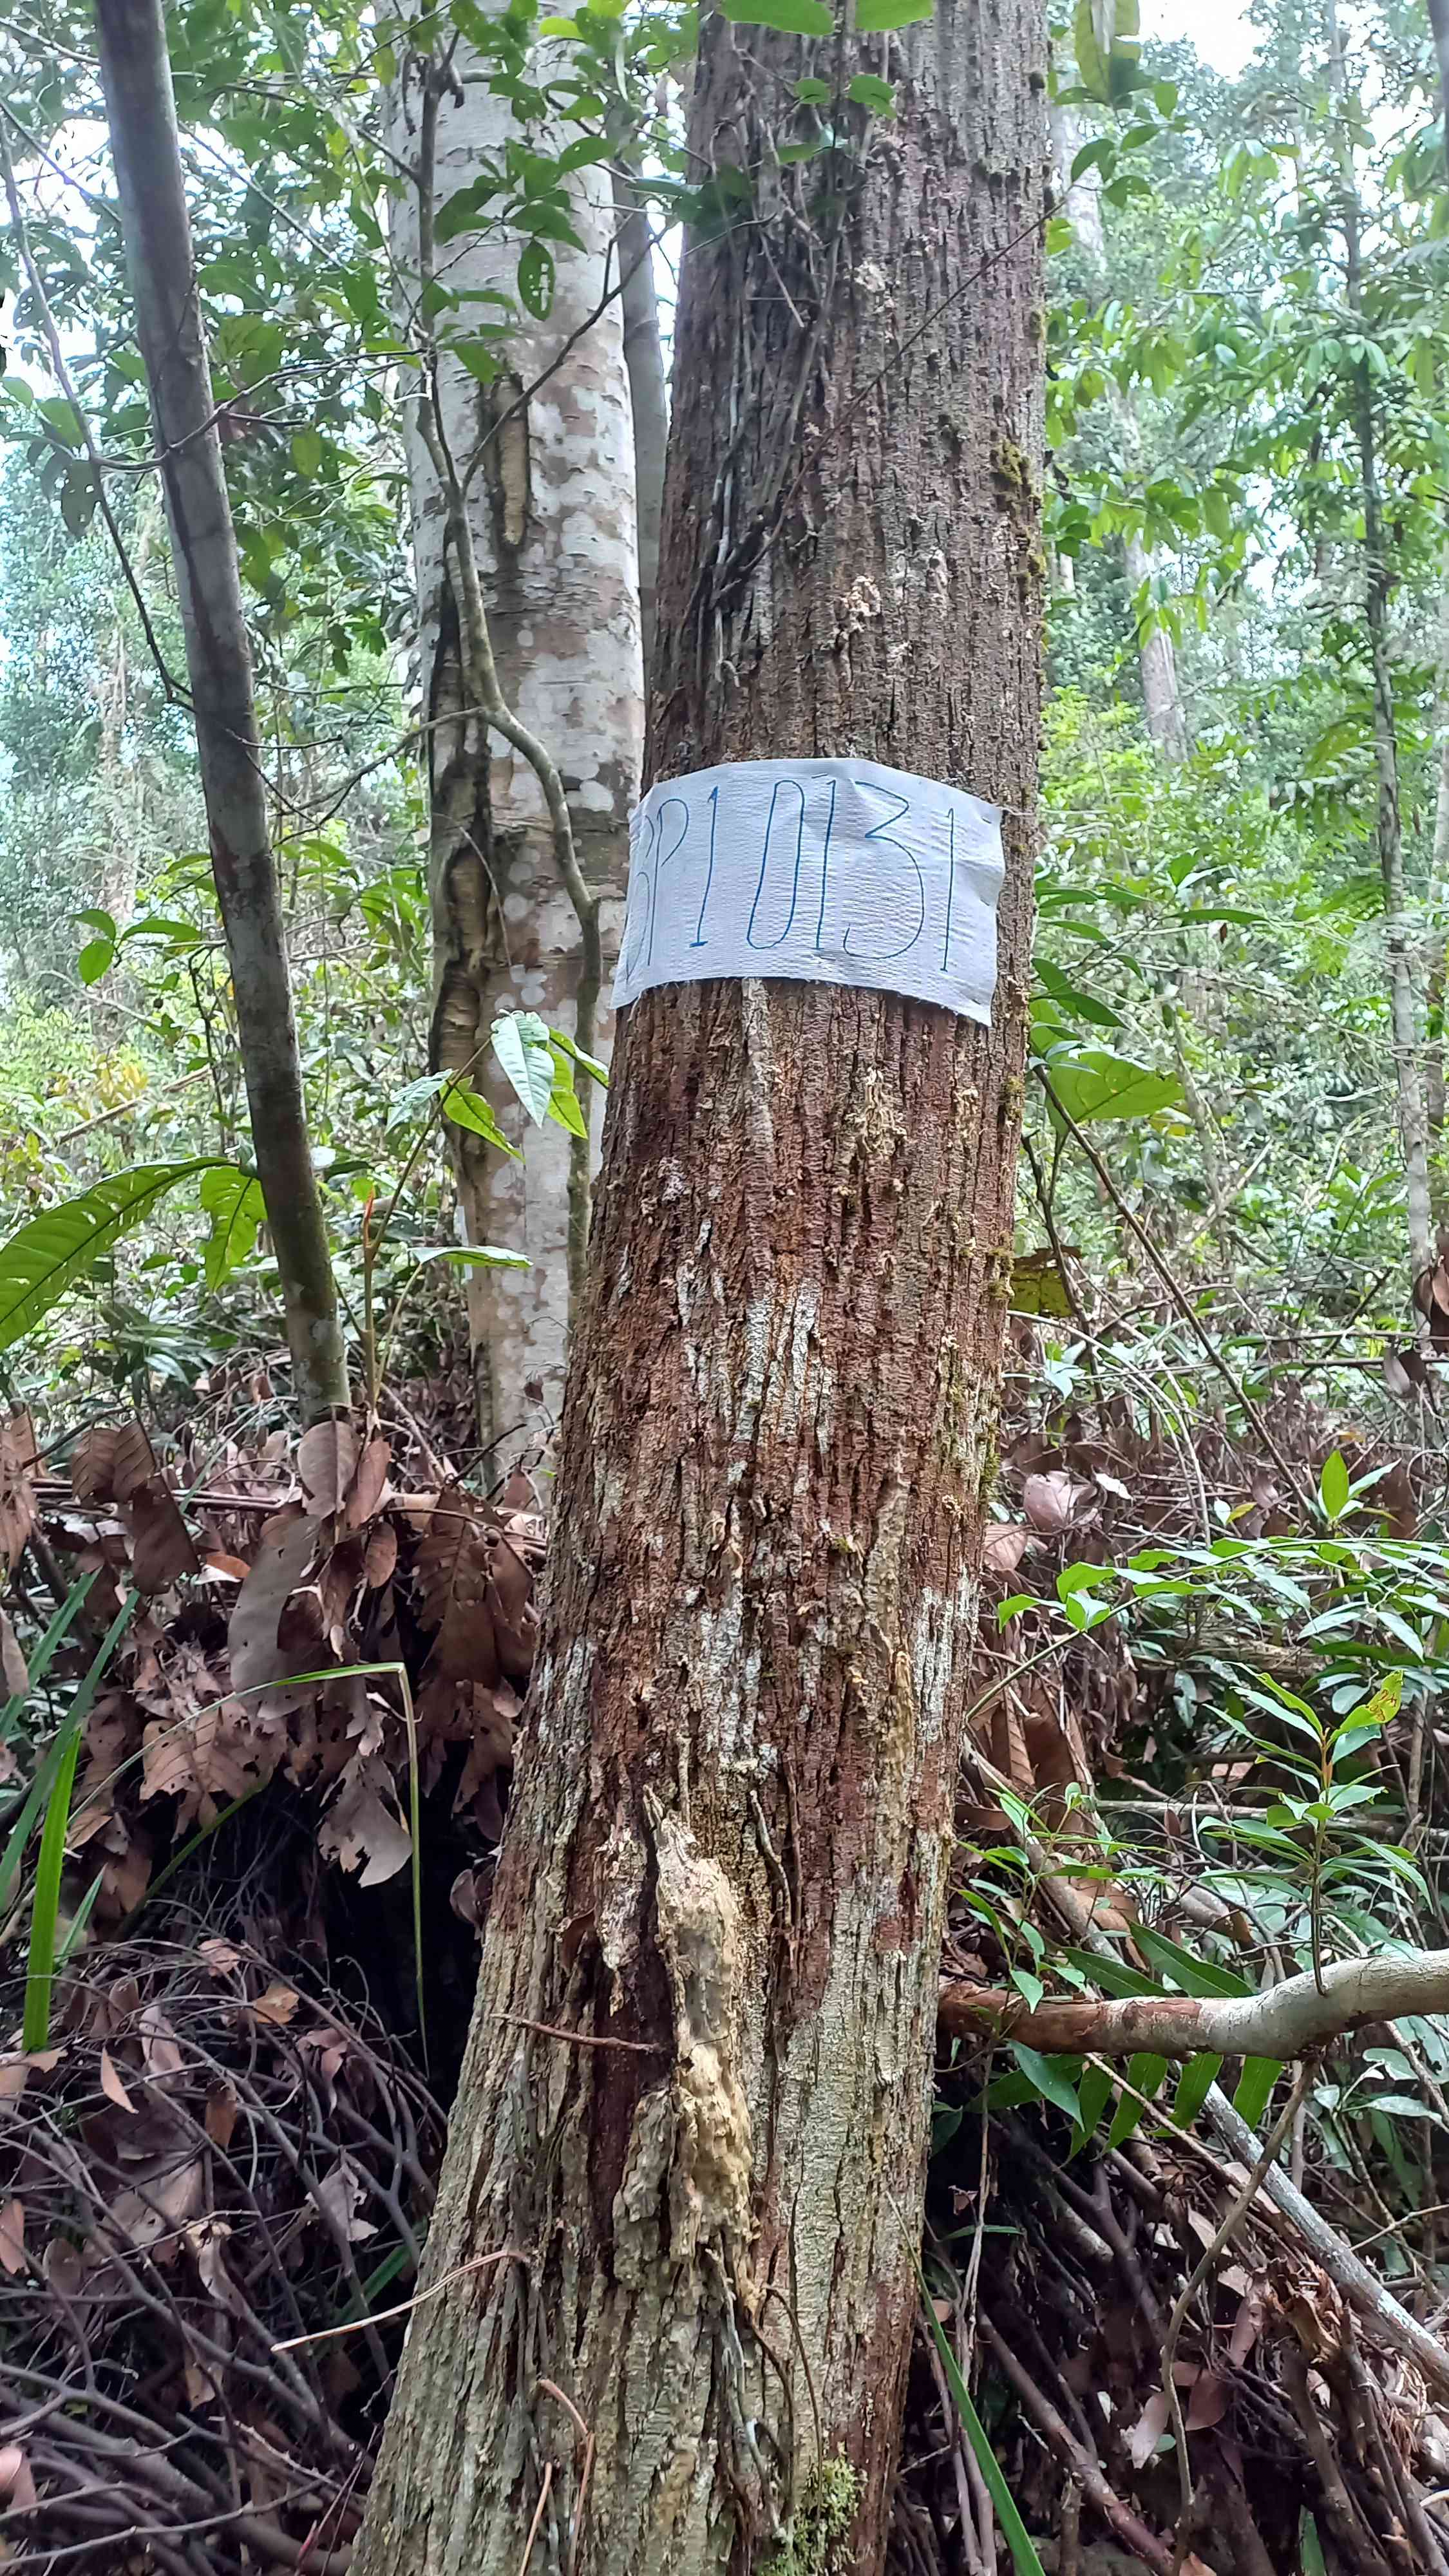 BP1 0131